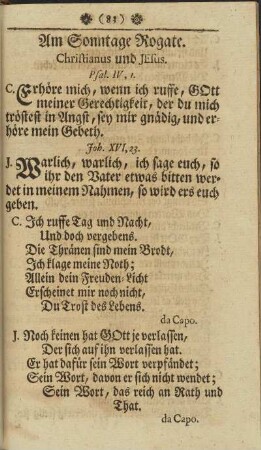 (81)
Am Sonntage Rogate.
Christianus und JEsus.
Psal. IV, 1.
C. Erhöre mich, wenn ich ruffe, GOtt
meiner Gerechtigkeit, der du mich
tröstest in Angst, sey mir gnädig, und er-
höre mein Gebeth.
Joh. XVI, 23.
J. Warlich, warlich, ich sage euch, so
ihr den Vater etwas bitten wer-
det in meinem Nahmen, so wird ers euch
geben.
C. Ich ruffe Tag und Nacht,
Und doch vergebens.
Die Thränen sind mein Brodt,
Ich klage meine Noth;
Allein dein Freuden-Licht
Erscheinet mir noch nicht,
Du Trost des Lebens.
da Capo.
J. Noch keinen hat GOtt je verlassen,
Der sich auf ihn verlassen hat.
Er hat dafür sein Wort verpfändet;
Sein Wort, davon er sich nicht wendet;
Sein Wort, das reich an Rath und
That.
da Capo.